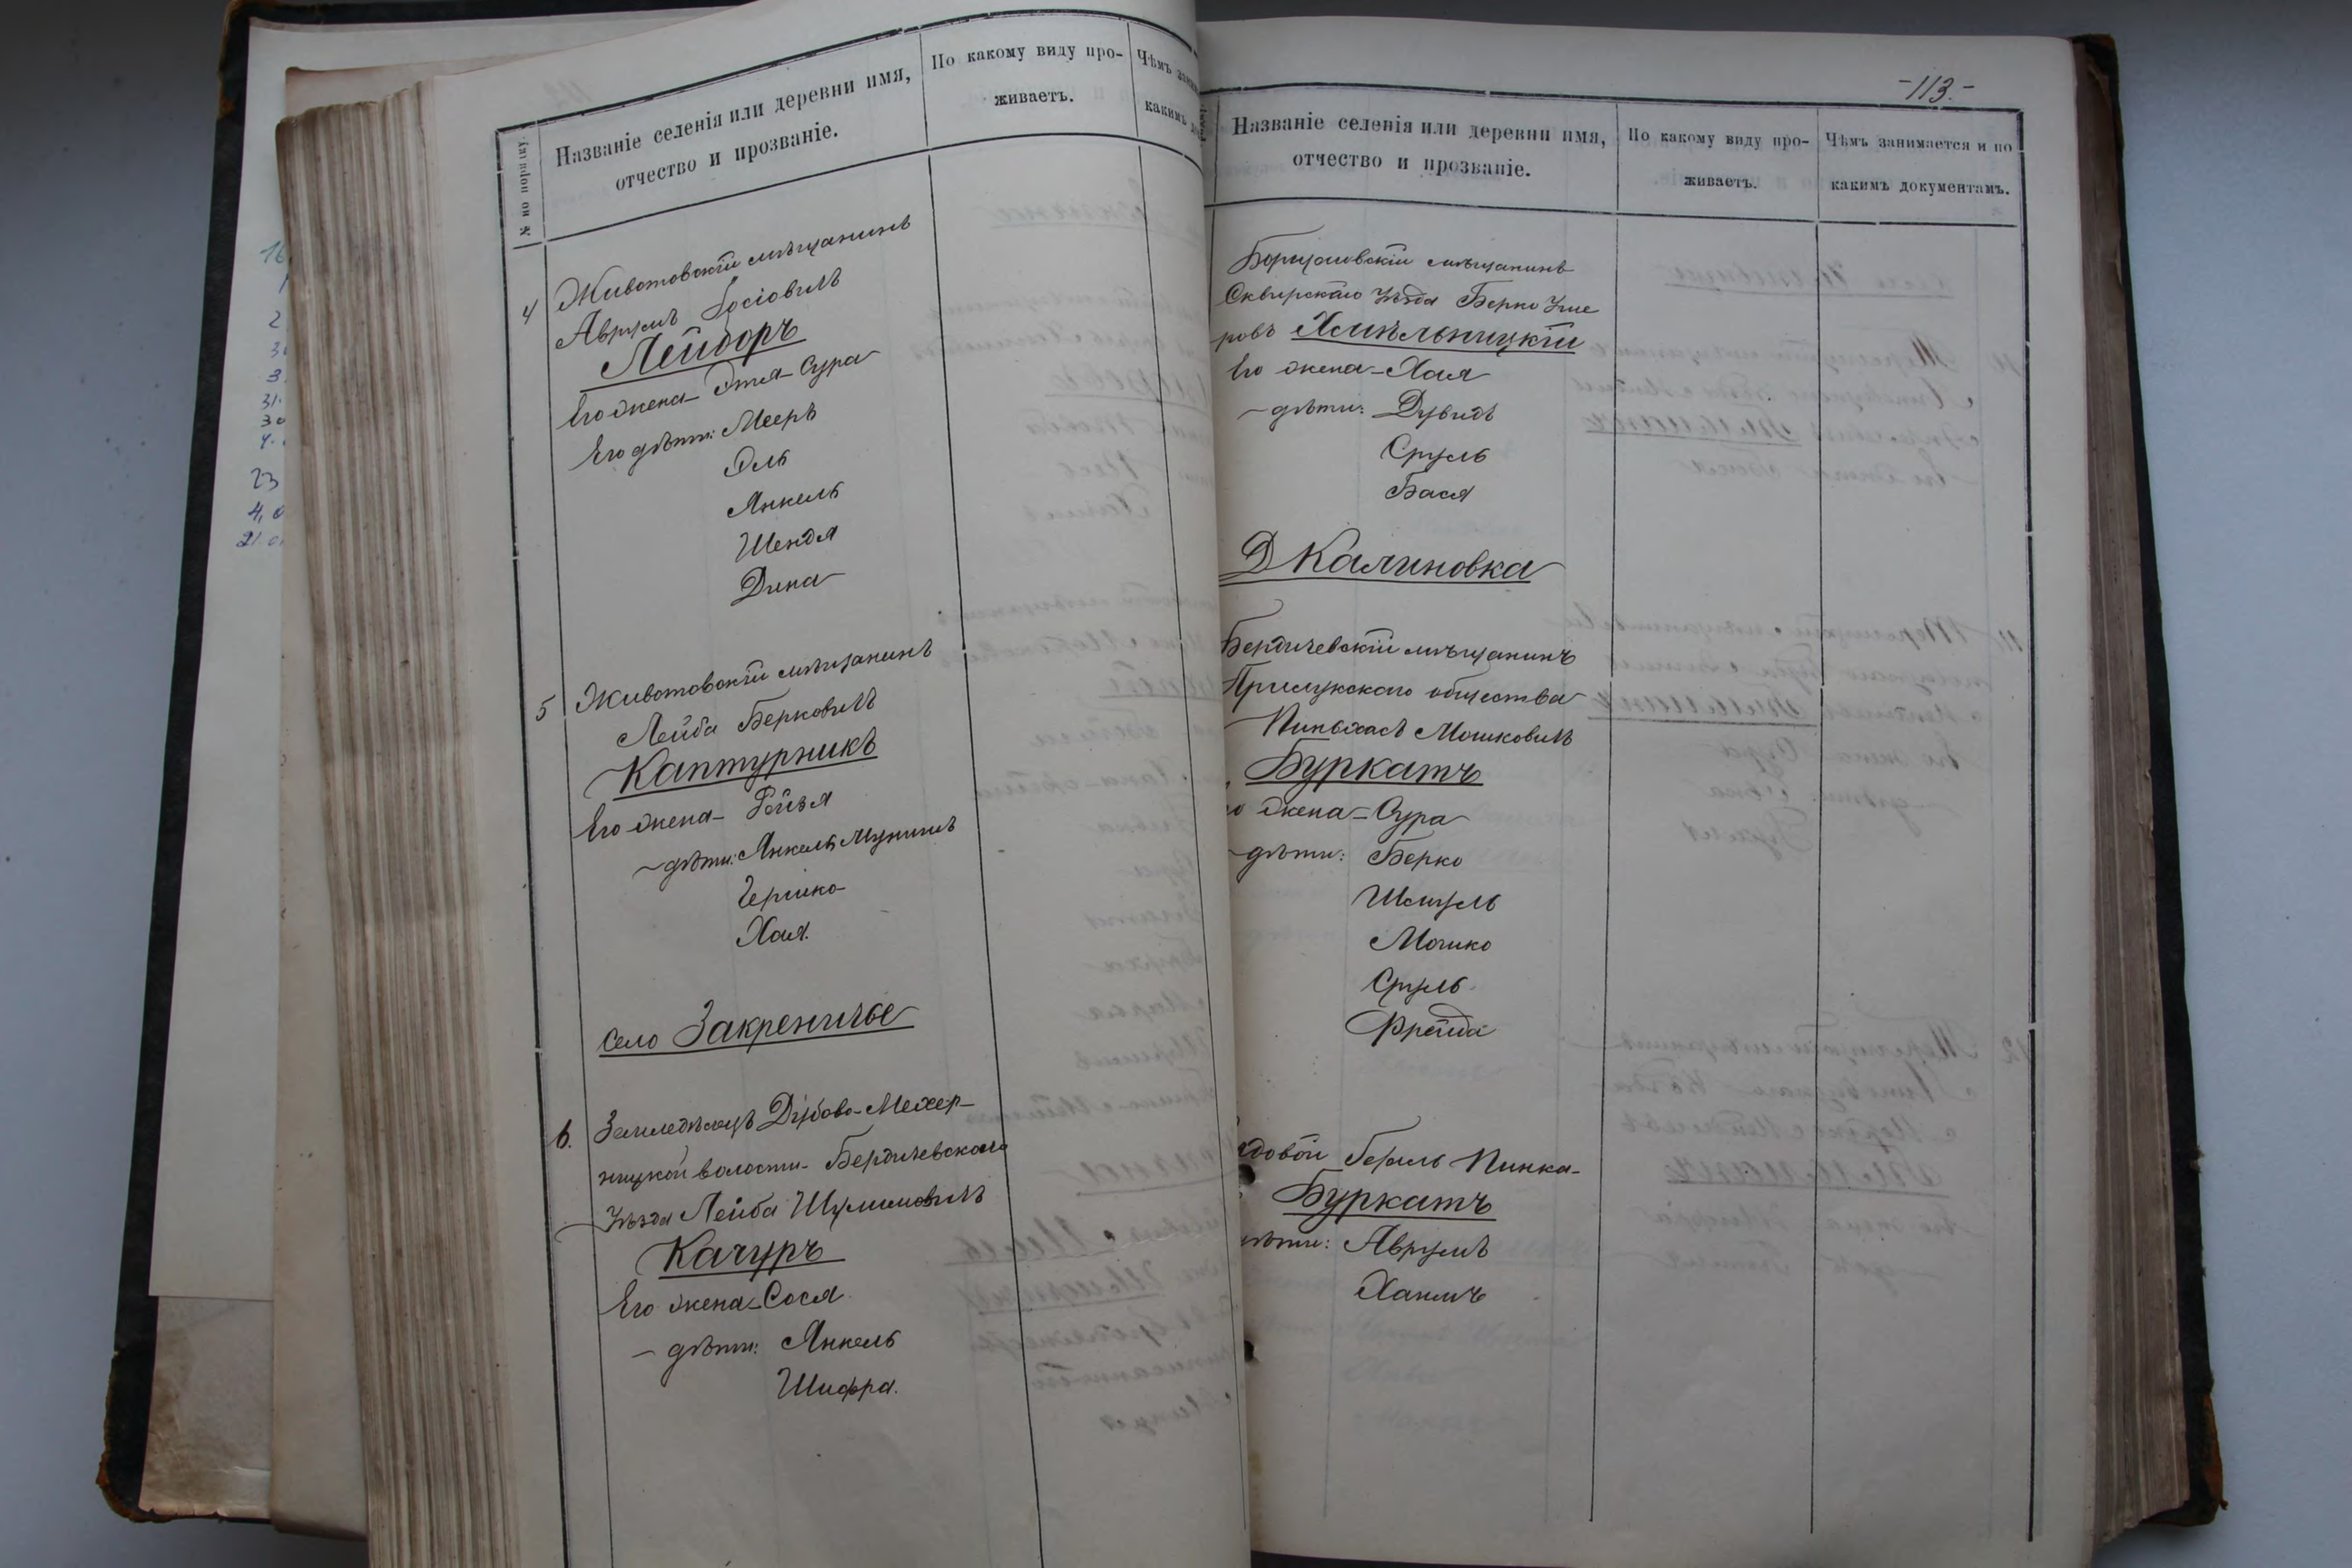 № по порядку
Названіе селенія или деревни имя,
отчество и прозваніе.
По какому виду про-
живаетъ.
Чѣмъ
какимъ
4
Животовскій мѣщанинъ
Аврумъ Iосіовичъ
Лейдоръ
Его жена - Этя-Сура
Его дѣти: Мееръ
Эль
Янкель
Шендля
Дина
5
Животовскій мѣщанинъ
Лейба Берковичъ
Каптурникъ
Его жена - Рейзя
- дѣти: Янкель
Гершко
Хая.
Село Закреничье
6.
Земледѣлецъ Дубово-Мехер-
ницкой волости - Бердичевскаго
Уѣзда Лейба Шулимовичъ
Качуръ
Его жена - Сося
- дѣти: Янкель
Шифра.
-113.-
Названіе селенія или деревни имя,
отчество и прозваніе.
По какому виду про-
живаетъ.
Чѣмъ занимается и по
какимъ документамъ.
Борщовскій мѣщанинъ
Сквирскаго Уѣзда Берко Уше
ровъ Хмѣльницкій
Его жена - Хая
- дѣти: Дувидъ
Сруль
Бася
Д Калиновка
Бердичевскій мѣщанинъ
Прилукскаго общества
Пинькасъ Мошковичъ
Буркатъ
жена - Сура
- дѣти: Берко
Шмуль
Мошко
Сруль
Фрейда
Пинка-
Буркатъ
дѣти: Аврумъ
Хаимъ
16
2
3
31.
30
4.
23
4.0
21.0